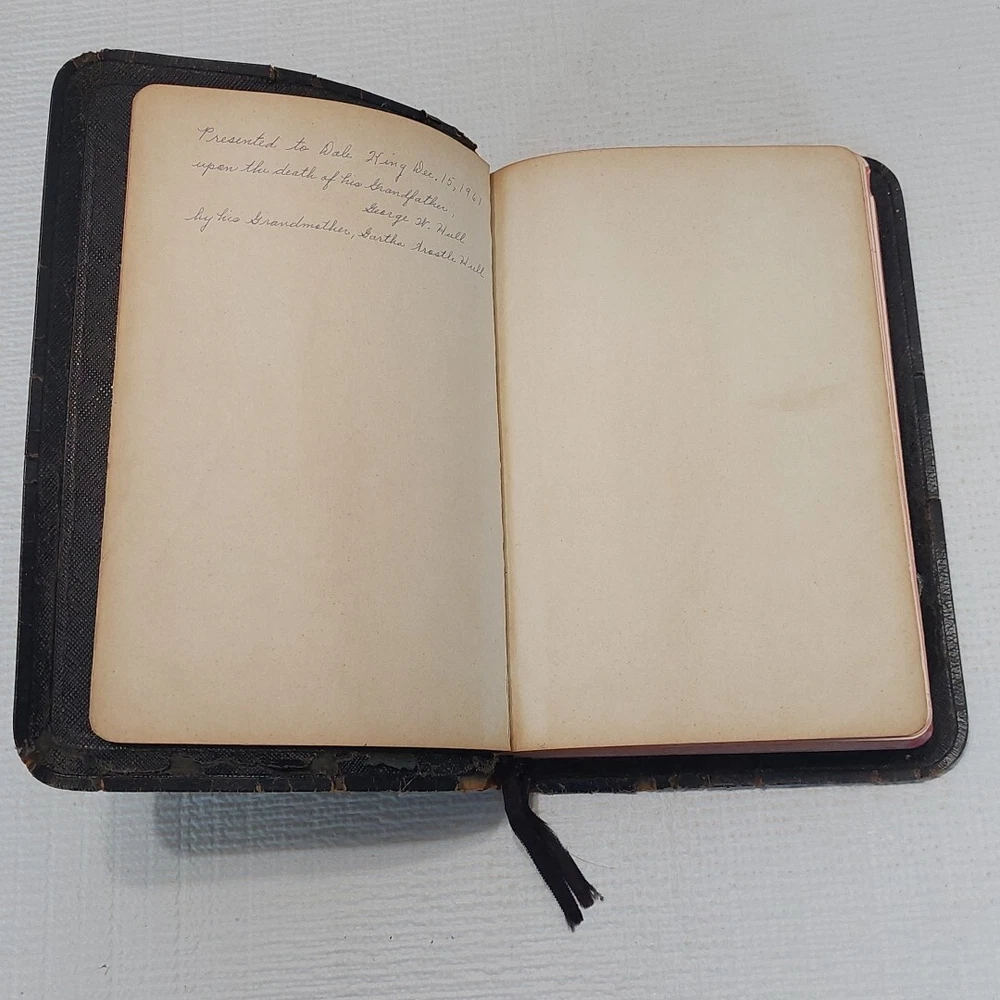 Presented to Dale King Dec. 15, 1961
upon the death of his Grandfather,
George W. Hull
by his Grandmother, Gartha Trostle Hull